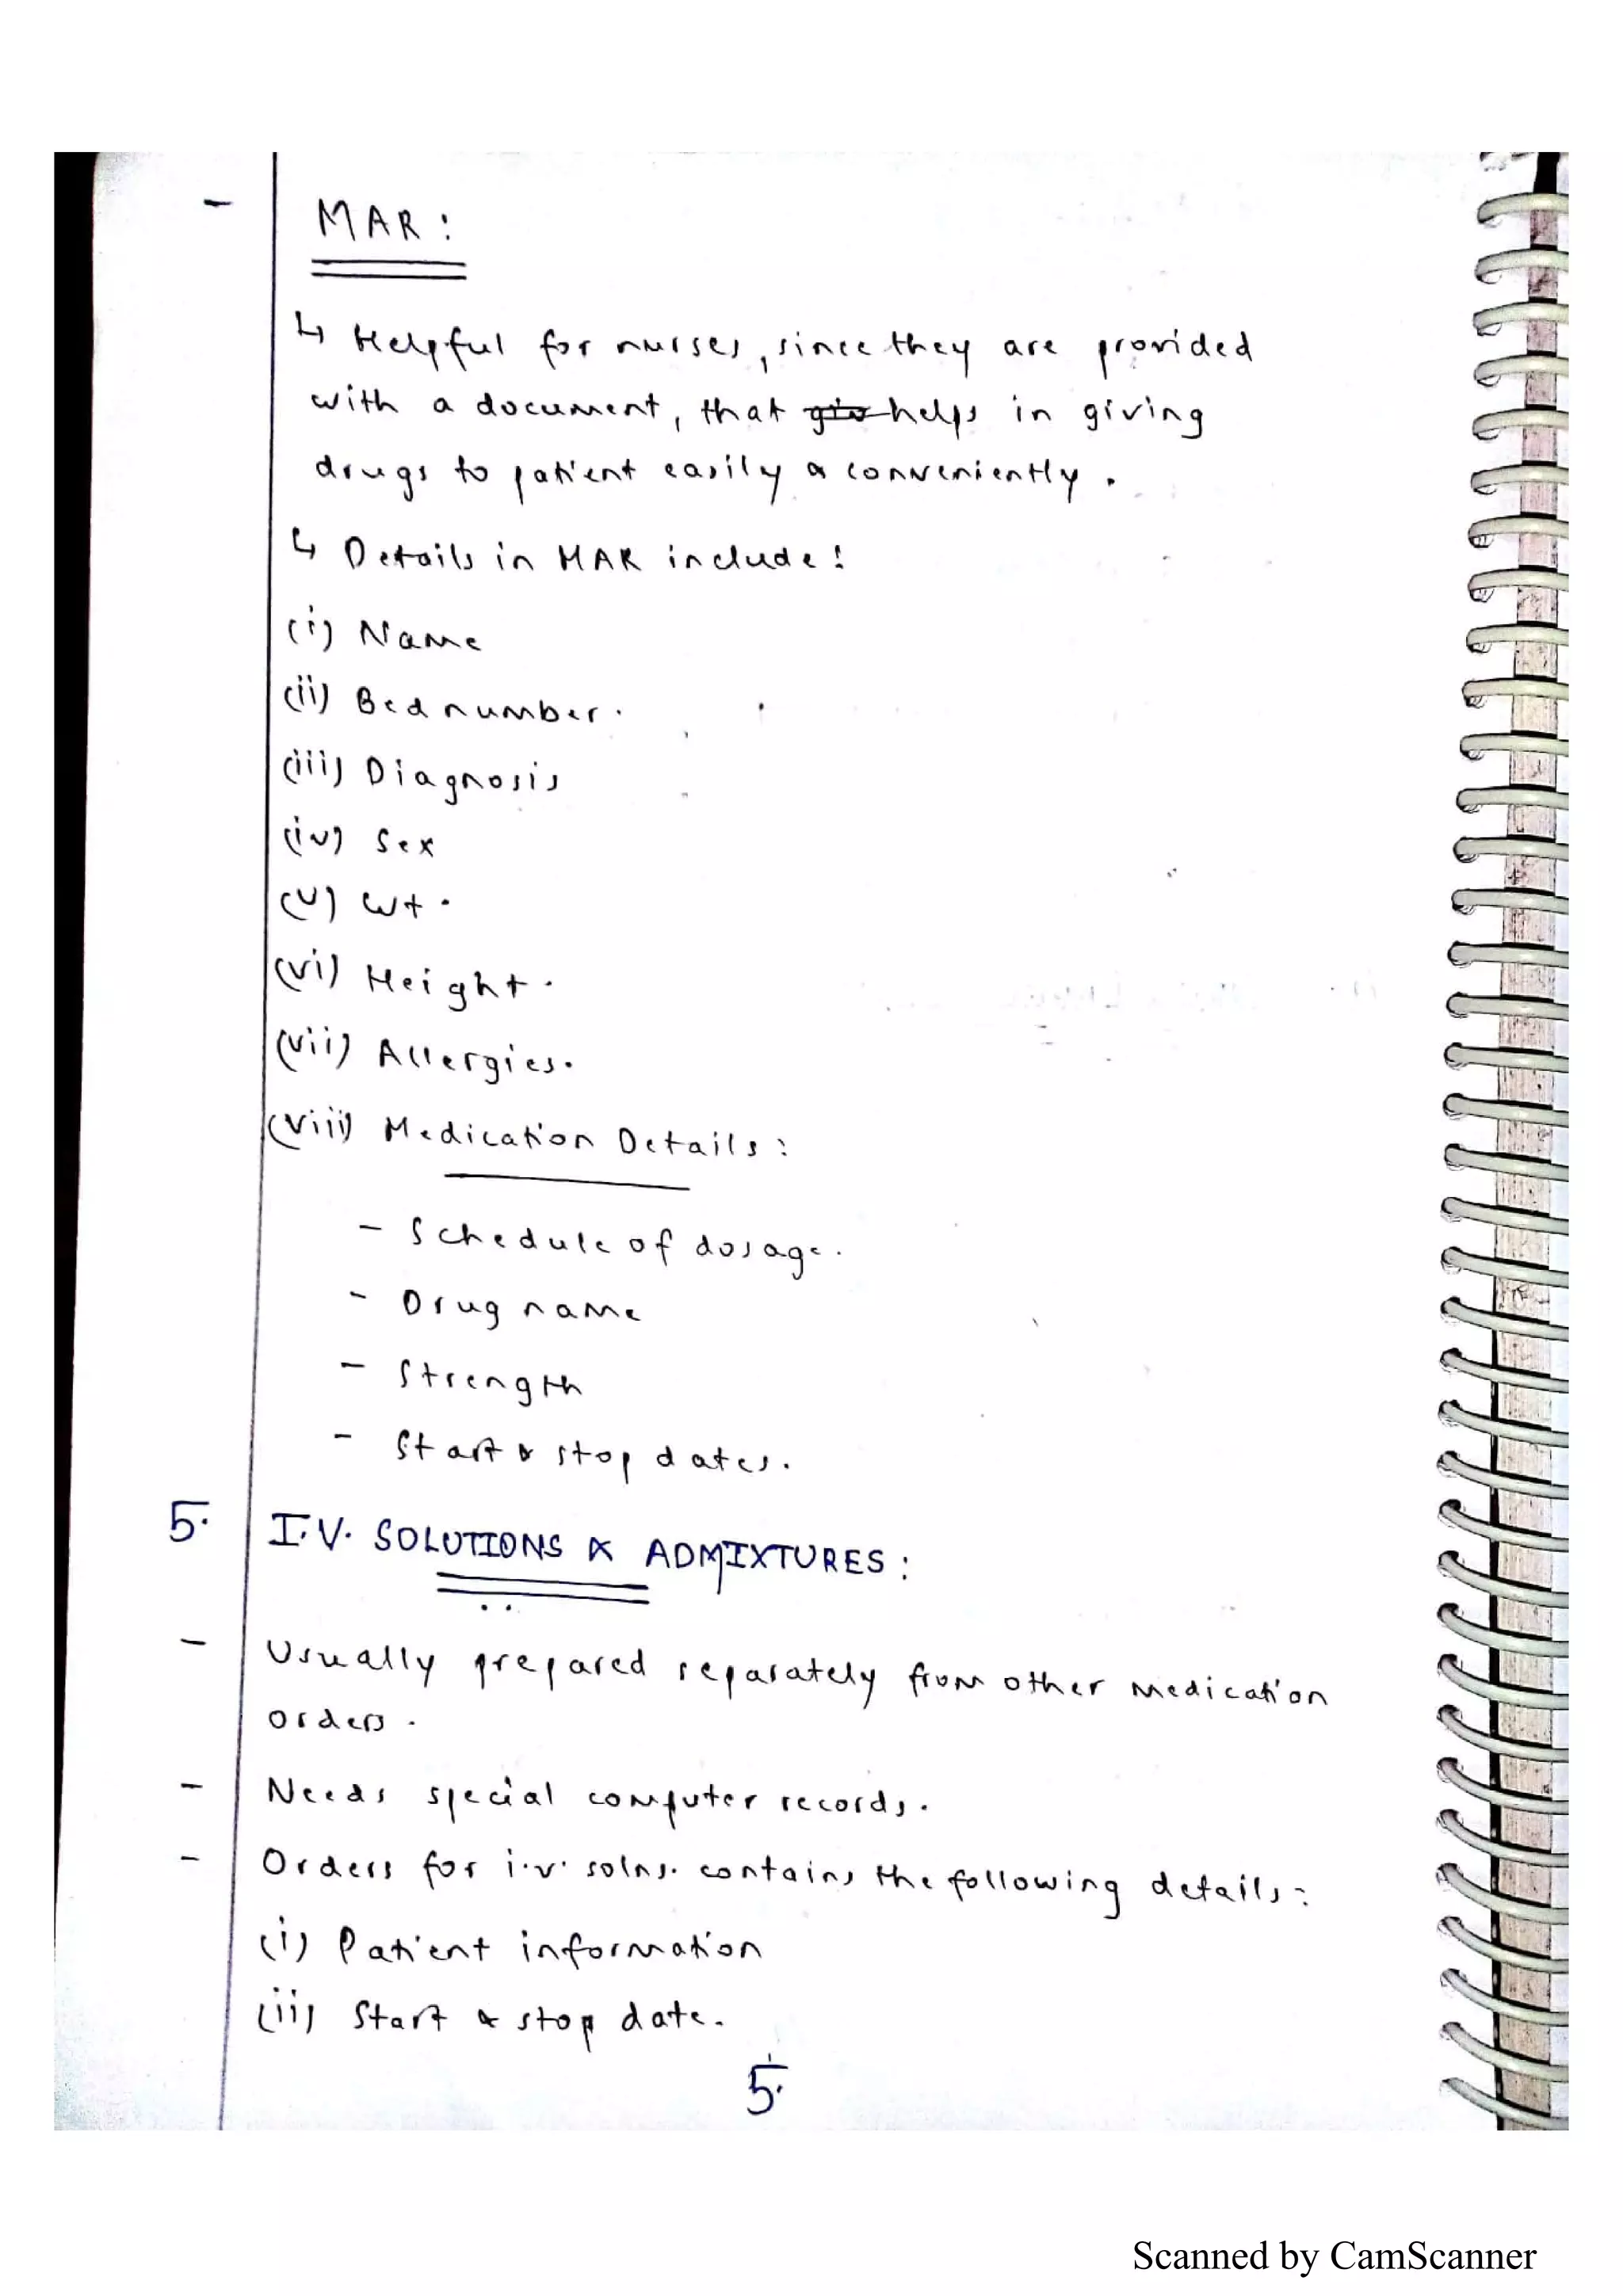 - MAR :
↳ Helpful for nurses, since they are provided
with a document, that giv helps in giving
drugs to patient easily & conveniently.
↳ Details in MAR include :
(i) Name
(ii) Bed number.
(iii) Diagnosis
(iv) Sex
(v) Wt.
(vi) Height.
(vii) Allergies.
(viii) Medication Details :
- Schedule of dosage.
- Drug name
- Strength
- Start & stop dates.
5. I.V. SOLUTIONS & ADMIXTURES :
- Usually prepared separately from other medication
orders.
- Needs special computer records.
- Orders for i.v. solns. contains the following details :
(i) Patient information
(ii) Start & stop date.
5.
Scanned by CamScanner